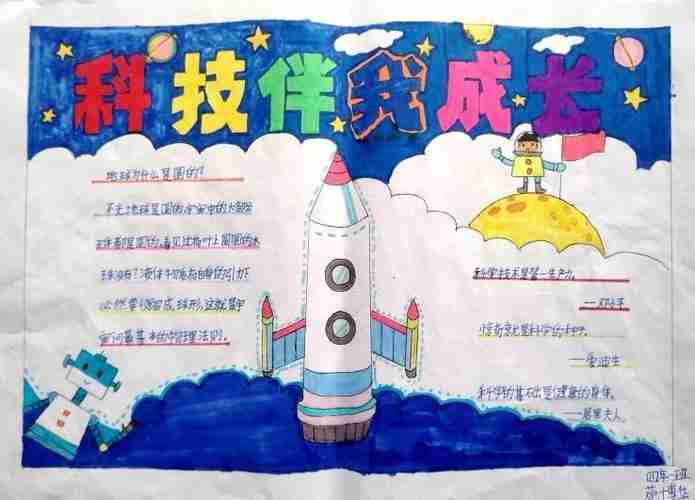 科技伴我成长
地球为什么是圆的?
不光地球是圆的,宇宙中的大部分
星体都是圆的,看见过树叶上圆圆的水
珠没有?液体
必然要凝固成球形,这就是宇
宙间最基本的物理法则。
科学技术是第一生产力。
——邓小平
惊奇就是科学的种子。
——爱迪生
科学的基础是健康的身体。
——居里夫人
四年一班